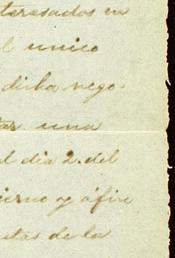 teresados en
l unico
dicha nego-
tar una
l dia 2. del
ierno y áfin
utas de la